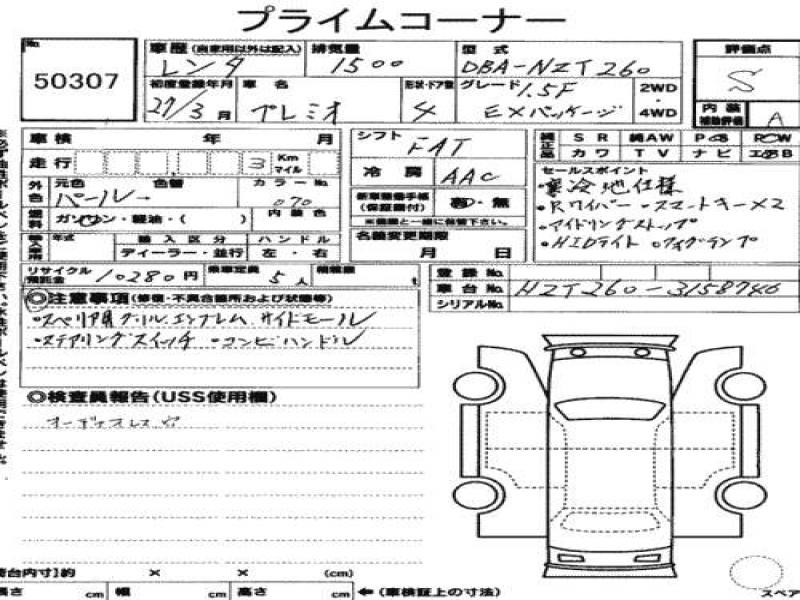 プライムコーナー
No. 50307
車歴(自家用以外は記入) レンタ 排気量 1500 型式 DBA-NZT260 評価点 S
初度登録年月 27/3月 車名 プレミオ 形状・ドア数 4 グレード 1.5F EXパッケージ 2WD・4WD 内装補助評価 A
車検 年 月 シフト FAT 純正品 SR 純AW PS PW
走行 3 Km マイル 冷房 AAC カワ TV ナビ エアB
外色 元色 パール 色替 カラーNo. 070 新車整備手帳(保証書付) 有・無 セールスポイント
※車両と一緒に保管下さい。 ・寒冷地仕様
燃料 ガソリン・軽油・( ) 内装色 ・Rワイパー ・スマートキー×2
輸入車用 年式 輸入区分 ディーラー・並行 ハンドル 左・右 名義変更期限 月 日 ・アイドリングストップ
・HIDライト ・フォグランプ
リサイクル預託金 10280円 乗車定員 5人 積載量 t 登録No.
車台No. NZT260-3158746
シリアルNo.
◎注意事項(修復・不具合箇所および状態等)
・スペリア用グリル.エンブレム.サイドモール
・ステアリングスイッチ ・コンビハンドル
◎検査員報告(USS使用欄)
オーディオレス穴
荷台内寸]約 × × (cm)
長さ cm 幅 cm 高さ cm ←(車検証上の寸法)
スペア